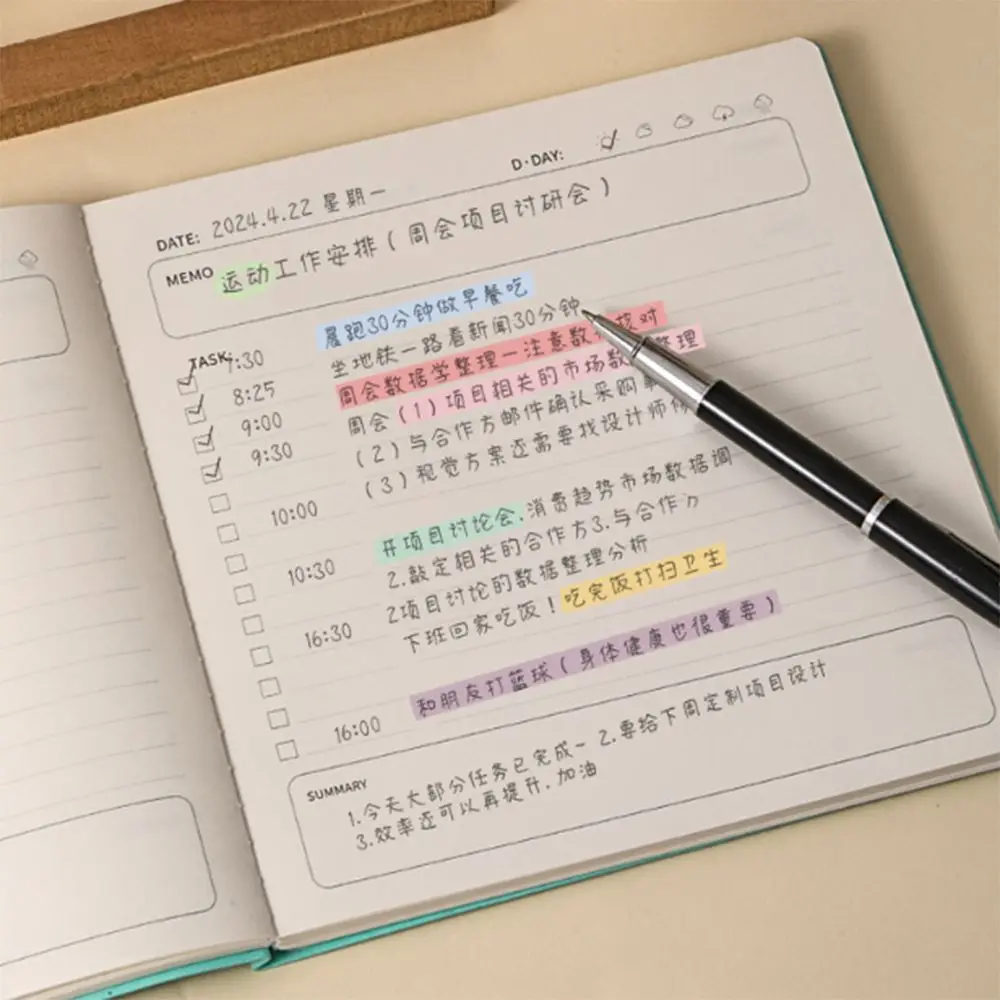 D·DAY:
DATE: 2024.4.22 星期一
MEMO 运动工作安排（周会项目讨研会）
TASK
7:30 晨跑30分钟做早餐吃
8:25 坐地铁一路看新闻30分钟
9:00 周会数据学整理一注意数 核对
9:30 周会（1）项目相关的市场数 整理
（2）与合作方邮件确认采购
（3）视觉方案还需要找设计师
10:00 开项目讨论会.消费趋势市场数据调
2.敲定相关的合作方3.与合作
10:30 2项目讨论的数据整理分析
下班回家吃饭！吃完饭打扫卫生
16:30
和朋友打篮球（身体健康也很重要）
16:00
SUMMARY
1.今天大部分任务已完成一 2.要给下周定制项目设计
3.效率还可以再提升.加油